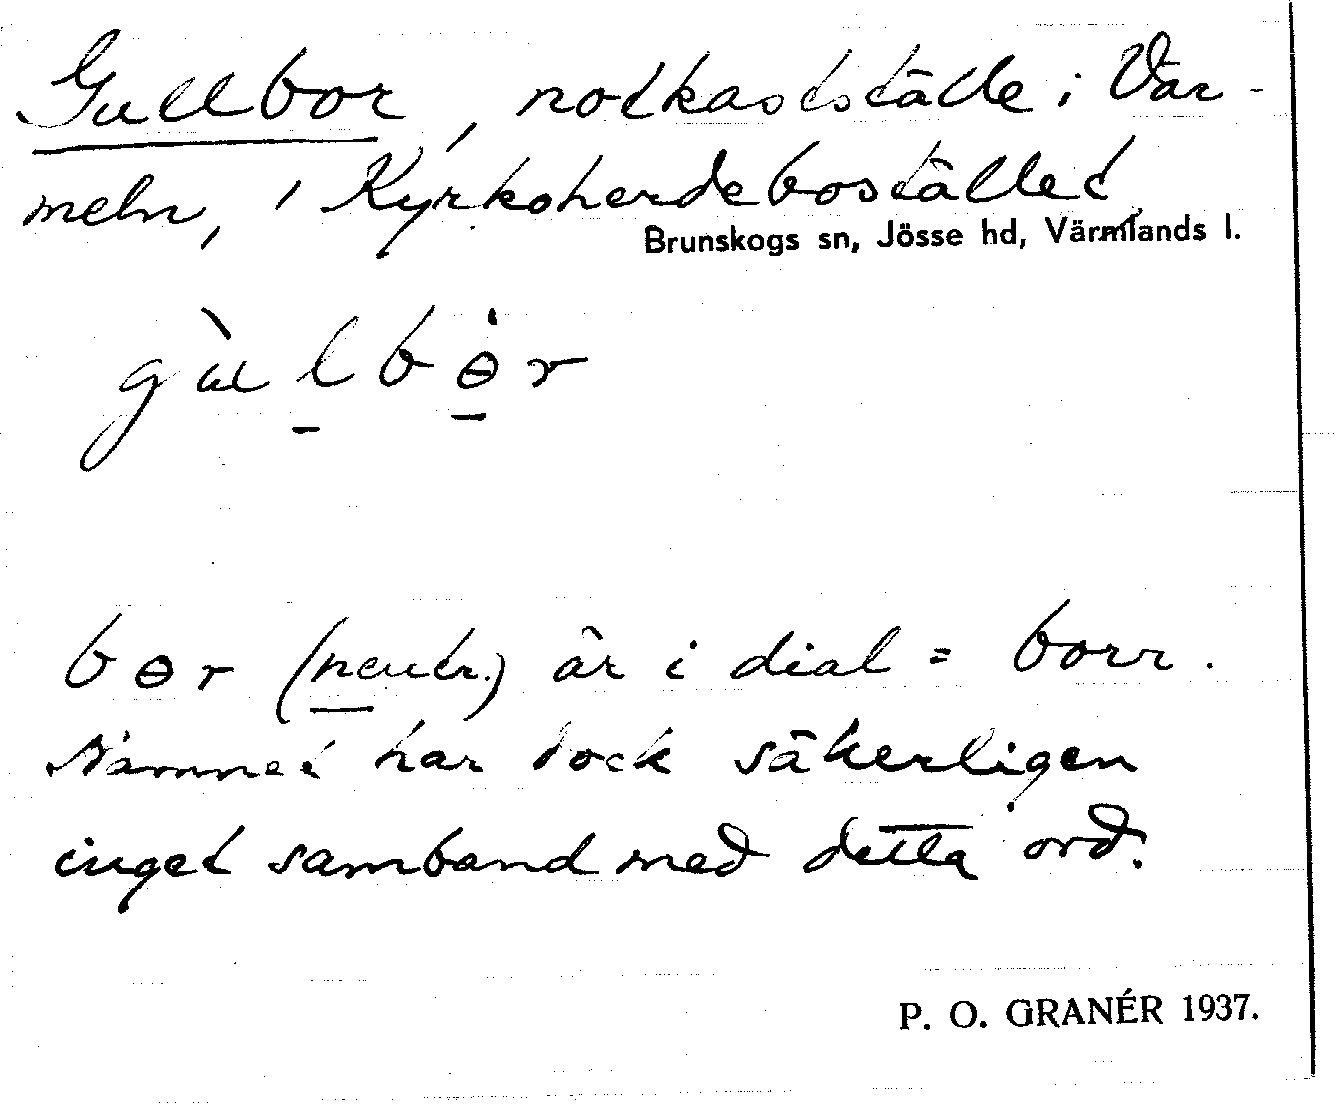 Gullbor, notkastställe i Vär-
meln, i Kyrkoherdebostället
Brunskogs sn, Jösse hd, Värmlands l.
gùlbɵr
bɵr (neutr.) är i dial = borr.
Namnet har dock säkerligen
inget samband med detta ord.
P. O. GRANÉR 1937.